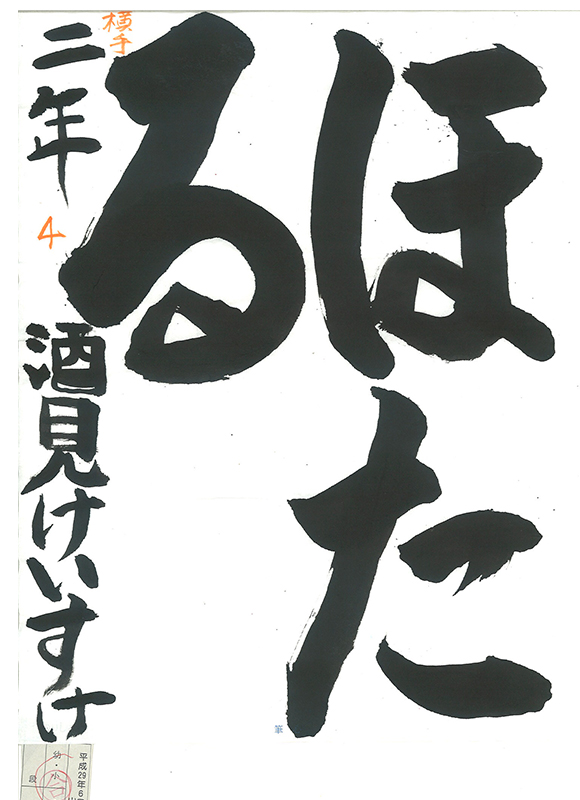 ほた
る
横手
二年
4
酒見けいすけ
筆
平成29年6
幼・小
段